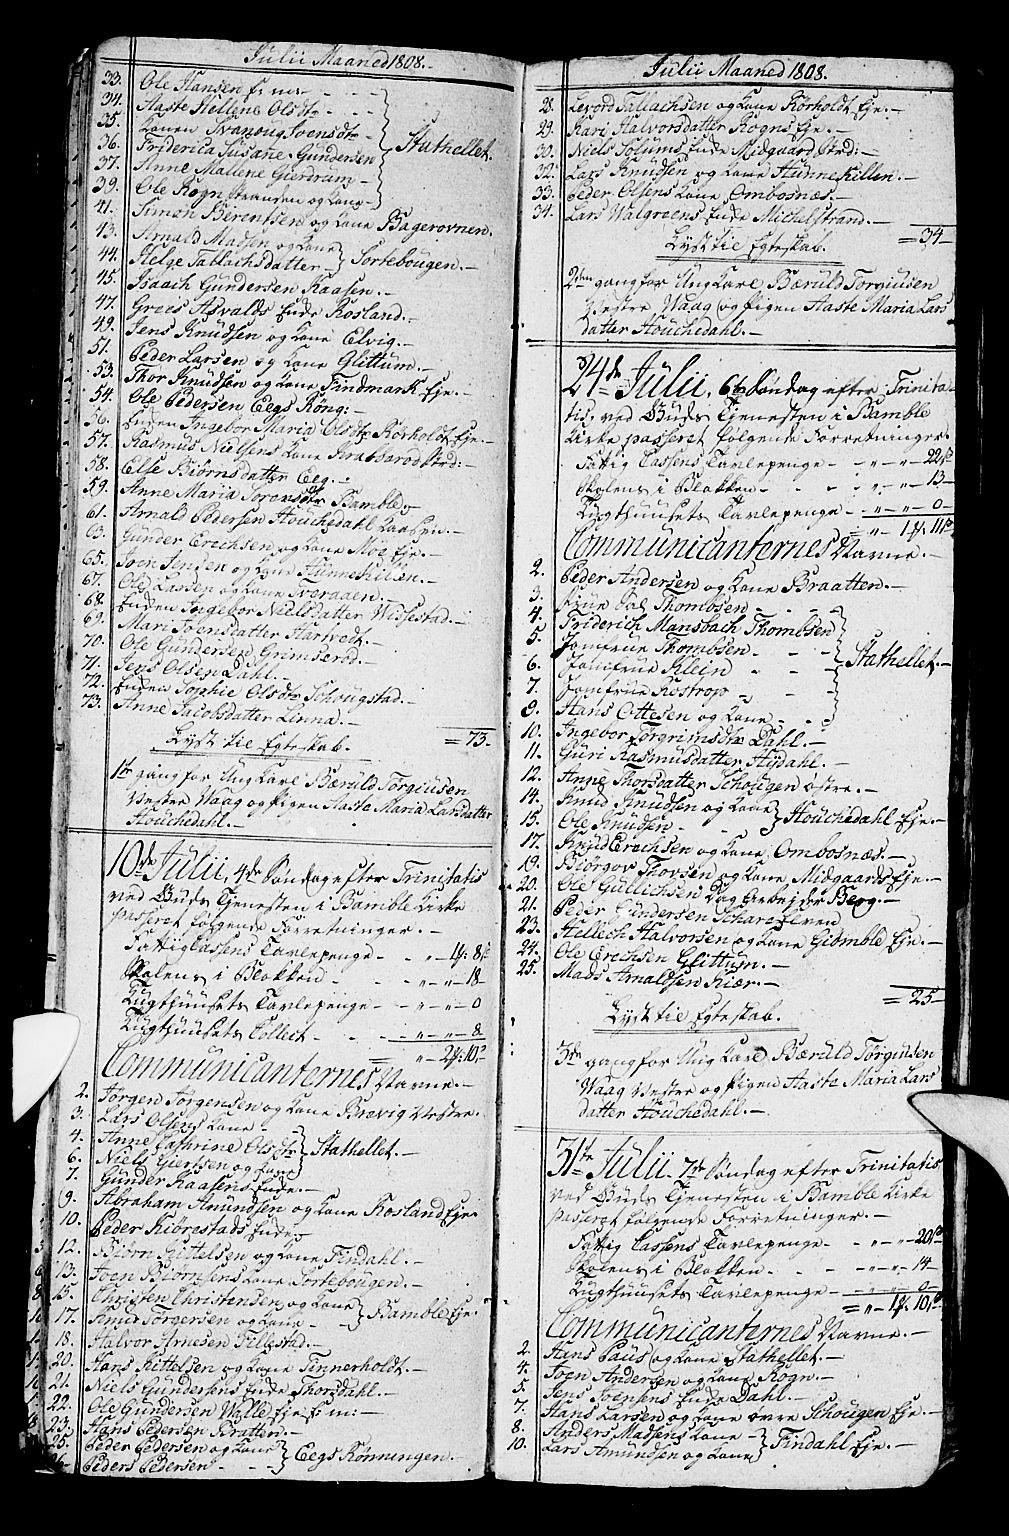 Julii Maaned 1808.
33. Ole Hansen E: m:
34. Aaste Hellene Olsdtr
35. Konen Svanoug Svensdtr
36. Friderica Susane Gundersen
37. Anne Mallene Gierdrum - Stathellet.
39. Ole Rogn Stranden og Kone
41. Simon Berentsen og Kone Bagerovnen.
43. Arnald Madsen og Kone
44. Helge Tallachsdatter } Sortebougen. -
45. Isaach Gundersen Kaasen. -
47. Grees Asvalds Ende Rosland. -
49. Jens Knudsen og Kone Elvig. -
51. Peder Larsen og Kone Glittum. -
53. Thor Knudsen og Kone Findmark Eje. -
54. Ole Pedersen Eegs Röng: -
56. Enden Ingebor Maria Olsdtr Rörholdt Eje. -
57. Rasmus Nielsens Kone Krabberød Strd: -
58. Else Biörnsdatter Eeg. -
59. Anne Maria Sorensdtr Bamble
61. Arnald Pedersen Houchedahl
63. Gunder Erichsen og Kone Moe Eje. -
65. Joen Jensen og Kone Hunnekillen. -
67. Ole Larsen og Kone Tveraaen.
68. Enden Ingebor Nielsdatter Wissestad. -
69. Mari Joensdatter Hartvedt. -
70. Ole Gundersen Grimseröd. -
71. Jens Olsen Dahl. -
72. Enden Sophie Olsdtr Schougstad. -
73. Anne Jacobsdatter Linna. -
= 73. -
Lyst til Egteskab.
1te gang for Ung Karl Bærüld Torgiusen
Vestre Waag og Pigen Aaste Maria Larsdatter
Houchedahl. -
10de Julii, 4de Søndag efter Trinitatis
ved Guds Tjenesten i Bamble Kirke
passeret følgende Forretninger. -
Fattig Cassens Tavlepenge - " - 1f: 8s
Skolens i Blokken - " - " - 18
Tugthuusets Tavlepenge - " - " - 0
Tugthuusets Collect - " - " - 8
= " - 2f: 10s. -
Communicanternes Navne. -
2. Jörgen Jörgensen og Kone Brevig Vestre.
3. Lars Olsens Kone -
4. Anne Cathrine Olsdtr } Stathellet. -
6. Niels Giertsen og Kone
7. Gunder Kaasens Ende. -
9. Abraham Amundsen og Kone Rosland Eje
10. Peder Kiörestads Ende
12. Biörn Kittelsen og Kone Findahl. -
13. Joen Biörnsens Kone Sortebougen. -
15. Christen Christensen og Kone
17. Knud Torgersen og Kone - } Bamble Eje.
18. Halvor Arnesen Tillestad. -
20. Hans Kittelsen og Kone Tinnerholdt. -
21. Niels Gundersens Ende Thorsdahl. -
22. Ole Gundersen Walle Eje E: m: -
23. Hans Pedersen Bratten. -
25. Peder Pedersen og Kone
26. Peders Pedersen - } Eegs Rönningen. -
Julii Maaned 1808.
28. Levord Tallachsen og Kone Rörholdt Eje. -
29. Kari Halvorsdatter Rogns Eje. -
30. Niels Solums Ende Midgaard Strd: -
32. Lars Knudsen og Kone Hunnekillen. -
33. Peder Olsens Kone Ombosnæs. -
34. Lars Walgreens Ende Michelstrand. -
= 34 -
Lyst til Egteskab.
2den gang for Ung Karl Bærüld Torgiusen
Vestre Waag og Pigen Aaste Maria Lars
datter Houchedahl. -
24de Julii, 6te Søndag efter Trinita-
tis, ved Guds Tjenesten i Bamble
Kirke passeret følgende Forretninger.
Fattig Cassens Tavlepenge - " - " - 22s
Skolens i Blokken - " - " - 13 -
Tugthuusets Tavlepenge - " - " - 0 -
= " - 1f. 11s.
Communicanternes Navne. -
2. Peder Andersen og Kone Braatten. -
3. Frue Sal: Thombsen -
4. Friderich Mansbach Thombsen
5. Jomfrue Thombsen -
6. Jomfrue Klein " Stathellet. -
7. Jomfrue Rostrop
9. Hans Ottesen og Kone -
10. Ingebor Torgrimsdtr Dahl. -
11. Guri Rasmusdatter Hydahl. -
12. Anne Thorsdatter Schougen østre. -
14. Knud Knudsen og Kone
15. Ole Knudsen - } Houchedahl Eje. -
17. Knud Erichsen og Kone Ombosnæs. -
19. Biörgov Thovsen og Kone Midgaards Eje. -
20. Ole Gullichsen Dag Arbejder Berg -
21. Peder Gundersen
23. Hellech Halvorsen og Kone Giömble Eje. -
24. Ole Erechsen Glittum. -
25. Mads Arnaldsen Kiær. -
= 25 -
Lyst til Egteskab.
3de gang for Ung Karl Bærüld Torgiusen
Waag Vestre og Pigen Aaste Maria Lars
datter Houchedahl. -
31te Julii. 7de Søndag efter Trinitatis
ved Guds Tjenesten i Bamble Kirke
passeret følgende Forretninger. -
Fattig Cassens Tavlepenge - " - " - 20s
Skolens i Blokken - " - " - 14 -
Tugthuusets Tavlepenge - " - " - 0 -
= " - 1f. 10s
Communicanternes Navne. -
2. Hans Paus og Kone Stathellet. -
4. Joen Andersen og Kone Rogn. -
5. Jens Joensens Ende Dahl. -
7. Hans Larsen og Kone øvre Schougen Eje. -
8. Anders Madsens Kone -
10. Lars Amundsen og Kone } Findahl Eje. -